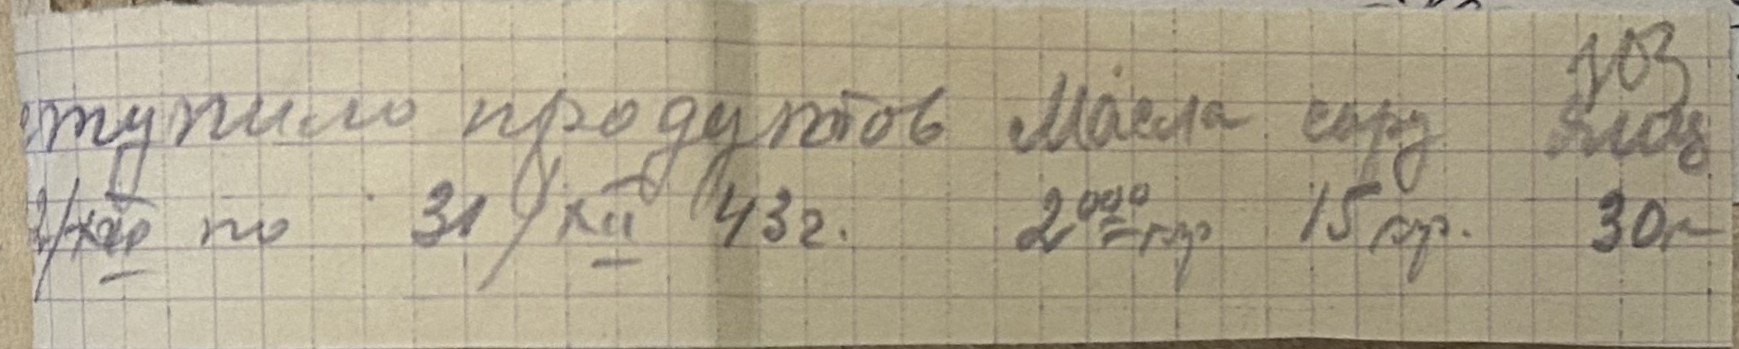 103
ступило продуктов Масла сыру яиц
/XII по 31/XII 43г. 2000 гр 15 гр. 30